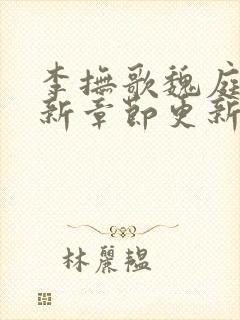 李撫歌魏庭
新章節更新
林麗韞